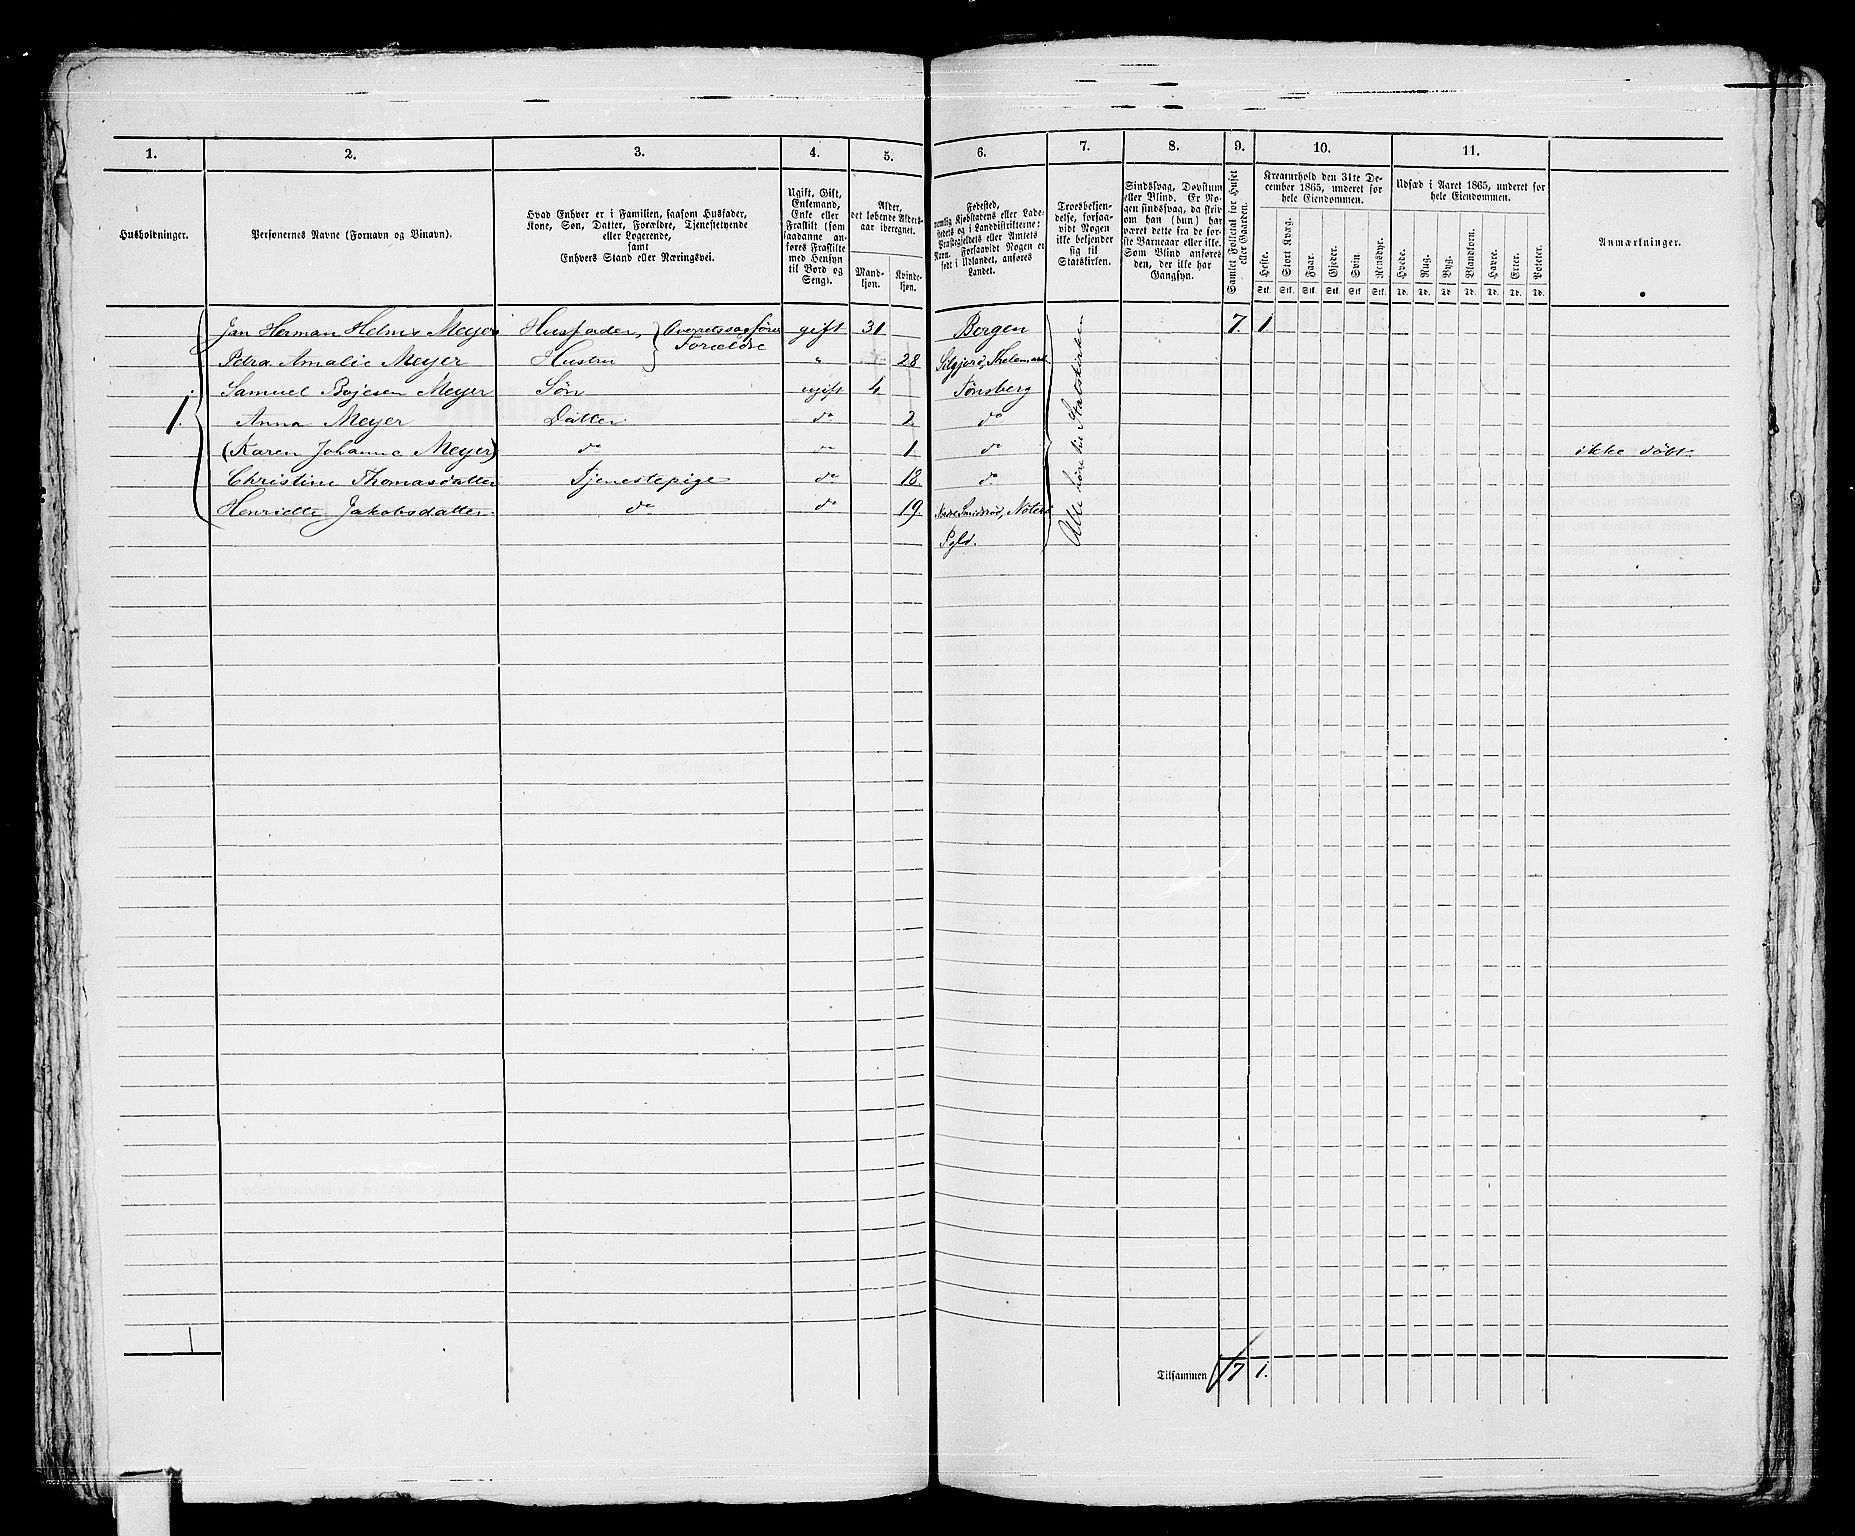 1. 2. 3. 4. 5. 6. 7. 8. 9. 10. 11.
Husholdninger.
Personernes Navne (Fornavn og Binavn).
Hvad Enhver er i Familien, saasom Husfader,
Kone, Søn, Datter, Forældre, Tjenestetyende
eller Logerende,
samt
Enhvers Stand eller Næringsvei.
Ugift, Gift,
Enkemand,
Enke eller
Fraskilt (som
saadanne an-
føres Fraskilte
med Hensyn
til Bord og
Seng).
Alder,
det løbende Alders-
aar iberegnet.
Mand-
kjøn.
Kvinde-
kjøn.
Fødested,
nemlig Kjøbstadens eller Lade-
stedets og i Landdistrikterne:
Præstegjeldets eller Amtets
Navn. Forsaavidt Nogen er
født i Udlandet, anføres
Landet.
Troesbekjen-
delse, forsaa-
vidt Nogen
ikke bekjender
sig til
Statskirken.
Sindssvag, Døvstum
eller Blind. Er No-
gen sindssvag, da skriv
om han (hun) har
været dette fra de før-
ste Barneaar eller ikke.
Som Blind anføres
den, der ikke har
Gangsyn.
Samlet Folketal for Huset
eller Gaarden.
Kreaturhold den 31te De-
cember 1865, underet for
hele Eiendommen.
Heste. Stort Kvæg. Faar. Gjeder. Svin. Rensdyr.
Stk. Stk. Stk. Stk. Stk. Stk.
Udsæd i Aaret 1865, underet for
hele Eiendommen.
Hvede. Rug. Byg. Blandkorn. Havre. Erter. Poteter.
Td. Td. Td. Td. Td. Td. Td.
Anmærkninger.
Jan Herman Helms Meyer Husfader, Overretssagfører gift 31 Bergen 7. 1
Forældre
Petra Amalie Meyer Hustru " 28 Thelemark
Samuel Bojesen Meyer Søn ugift 4 Tønsberg
1. Anna Meyer Datter do 2. do
(Karen Johanne Meyer) do do 1 do ikke døbt.
Christine Thomasdatter Tjenestepige do 18. do
Henriette Jakobsdatter do do 19. Smidsrød, Nøterø
Pgld.
Alle høre til Statskirken
1
Tilsammen 7 1.